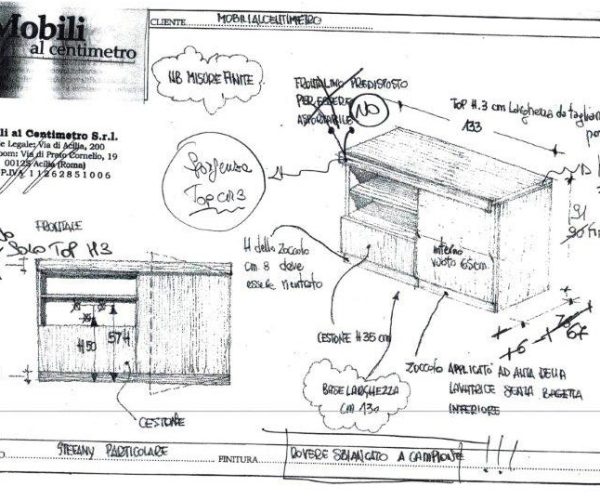 Mobili
al centimetro
CLIENTE MOBILIALCENTIMETRO
NB MISURE FINITE
FRONTALINO PREDISPOSTO
PER ESSERE
ASPORTABILE
NO
TOP H.3 cm Larghezza da tagliare
133
li al Centimetro S.r.l.
e Legale: Via di Acilia, 200
oom: Via di Prato Cornelio, 19
00125 Acilia (Roma)
P.IVA 11262851006
Sporgenza
TOP cm 3
FRONTALE
SOLO TOP H3
H dello Zoccolo
cm 8 deve
essere
interno
vuoto 65cm
91
90
H50
57H
CESTONE H 35 cm
6
67
ZOCCOLO APPLICATO AD ANTA DELLA
LAVATRICE SENZA BAGETTA
INFERIORE
BASE LARGHEZZA
CM 130
CESTONE
STEFANY PARTICOLARE
FINITURA ROVERE SBIANCATO A CAMPIONE !!!